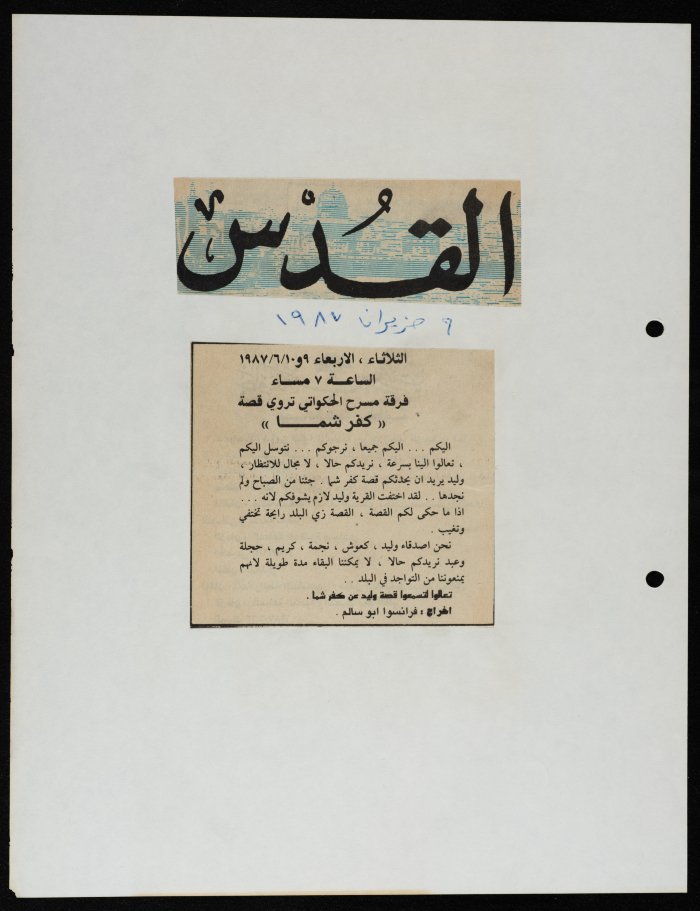 القدس
٩ حزيران ١٩٨٧
الثلاثاء ، الاربعاء ٩و١٩٨٧/٦/١٠
الساعة ٧ مساء
فرقة مسرح الحكواتي تروي قصة
« كفر شما »
اليكم ... اليكم جميعا ، نرجوكم ... نتوسل اليكم
، تعالوا الينا بسرعة ، نريدكم حالا ، لا مجال للانتظار ،
وليد يريد ان يحدثكم قصة كفر شما . جئنا من الصباح ولم
نجدها .. لقد اختفت القرية وليد لازم يشوفكم لانه ...
اذا ما حكى لكم القصة ، القصة زي البلد رايحة تختفي
وتغيب .
نحن اصدقاء وليد ، كعوش ، نجمة ، كريم ، حجلة
وعبد نريدكم حالا ، لا يمكننا البقاء مدة طويلة لانهم
يمنعوننا من التواجد في البلد ..
تعالوا لتسمعوا قصة وليد عن كفر شما .
اخراج : فرانسوا ابو سالم .